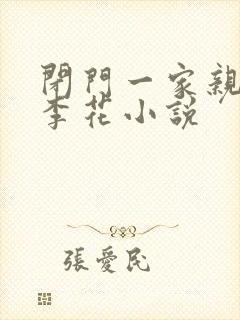 閉門一家親
李花小説
張愛民